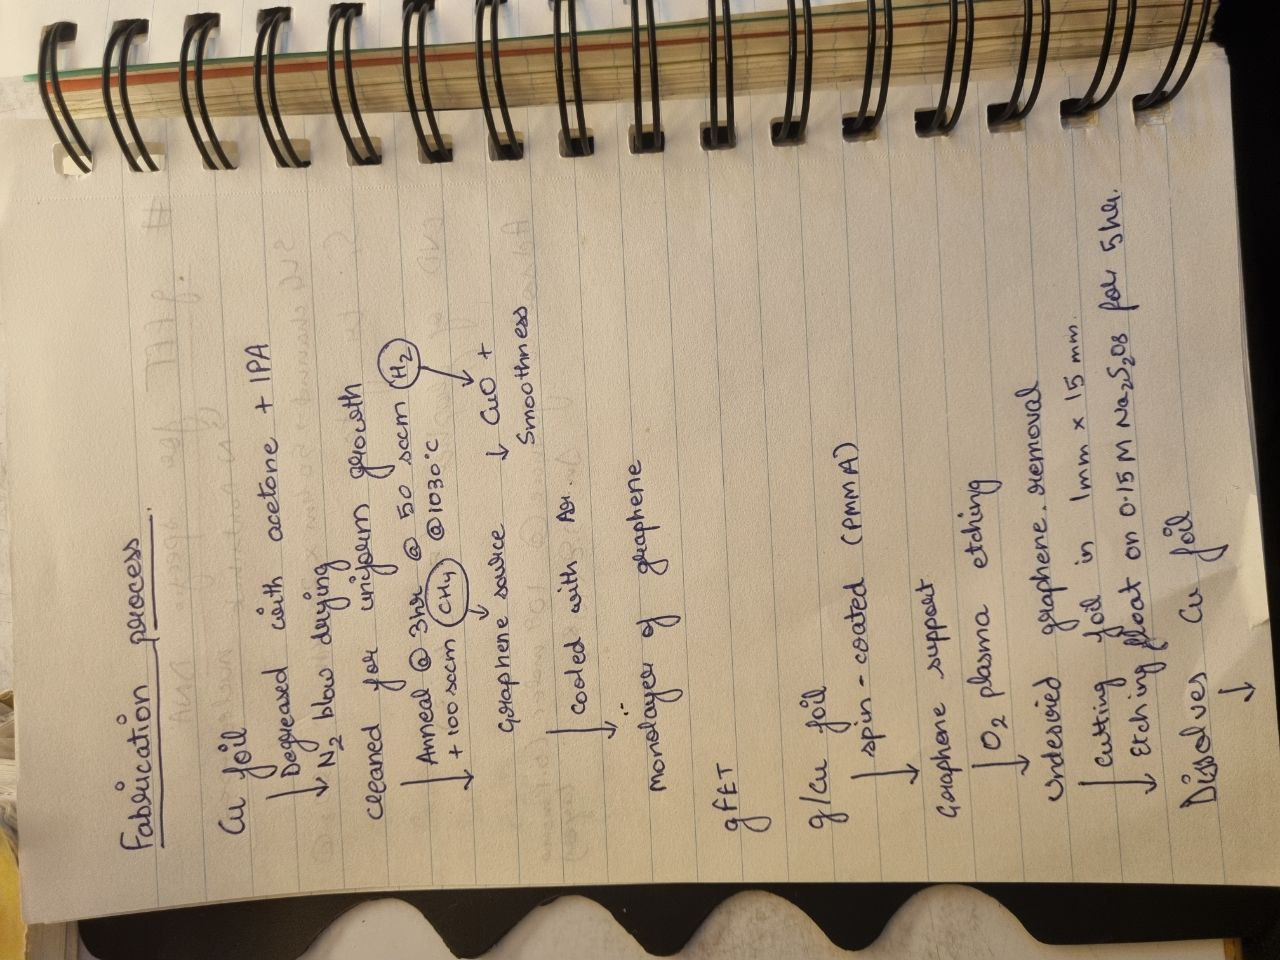 Fabrication process.
Cu foil
↓ Degreased with acetone + IPA
N2 blow drying
cleaned for uniform growth
↓ Anneal @ 3hr @ 50 sccm H2
+ 100 sccm CH4 @1030°C
Graphene source ↓ CuO +
Smoothness
↓ cooled with Ar.
monolayer of graphene
gFET
g/Cu foil
↓ spin-coated (PMMA)
Graphene support
↓ O2 plasma etching
Undesired graphene removal
↓ cutting foil in 1mm x 15 mm.
Etching float on 0.15 M Na2S2O8 for 5hr.
Dissolves Cu foil
↓